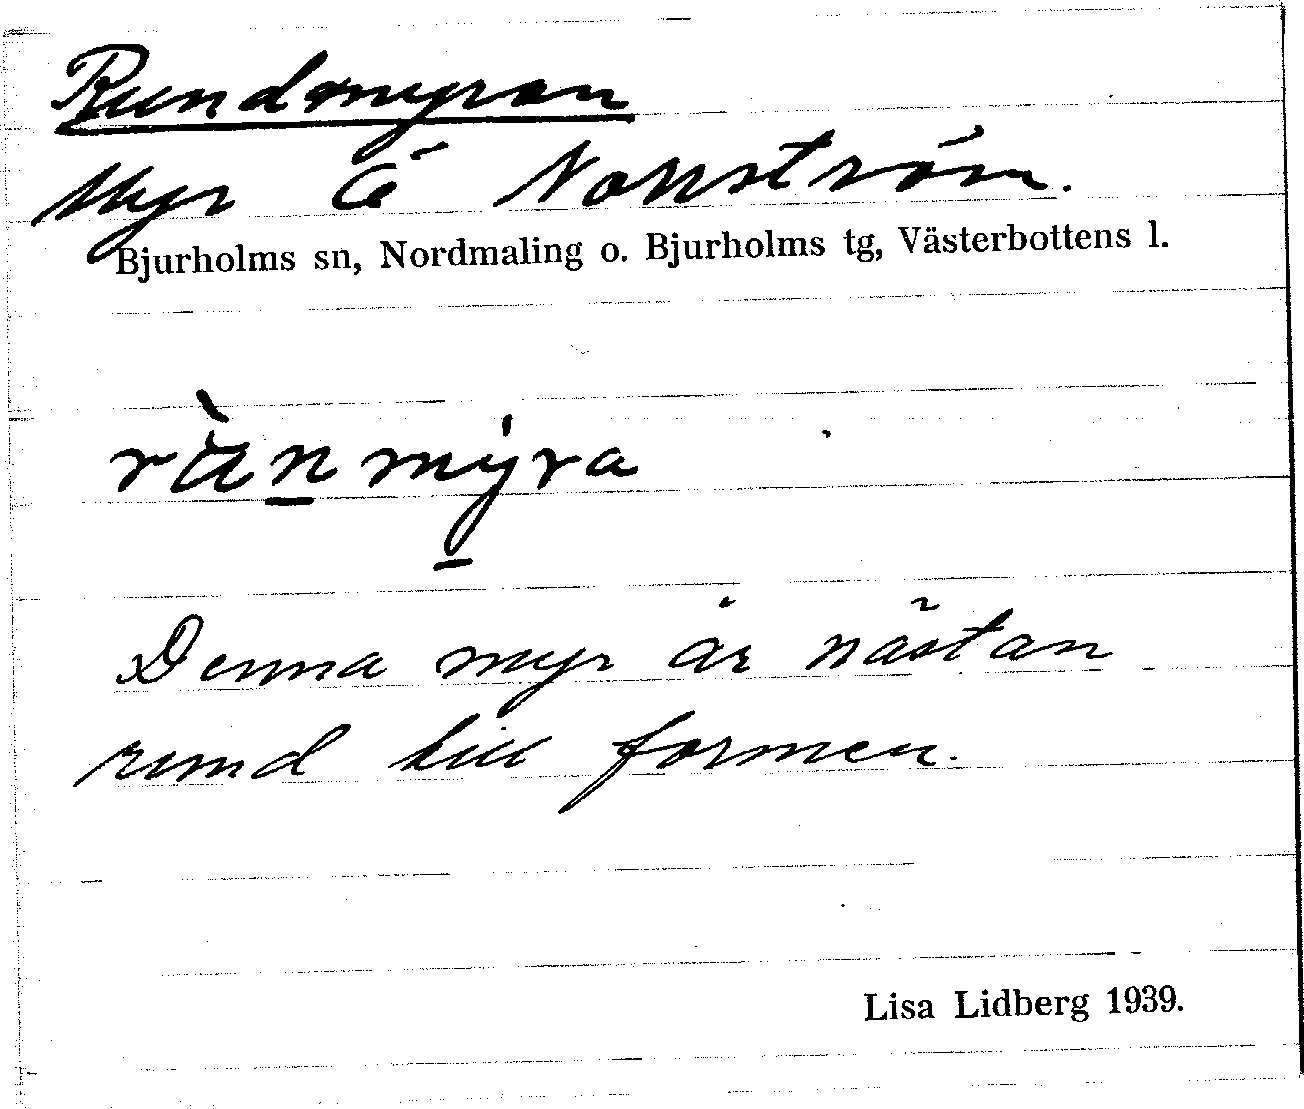 Rundmyran
Myr Ö Norrström.
Bjurholms sn, Nordmaling o. Bjurholms tg, Västerbottens l.
rùnmýra
Denna myr är nästan
rund till formen.
Lisa Lidberg 1939.